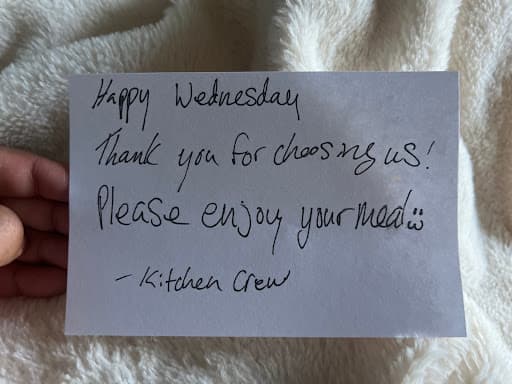 Happy Wednesday
Thank you for choosing us!
Please enjoy your meal :)
- Kitchen Crew